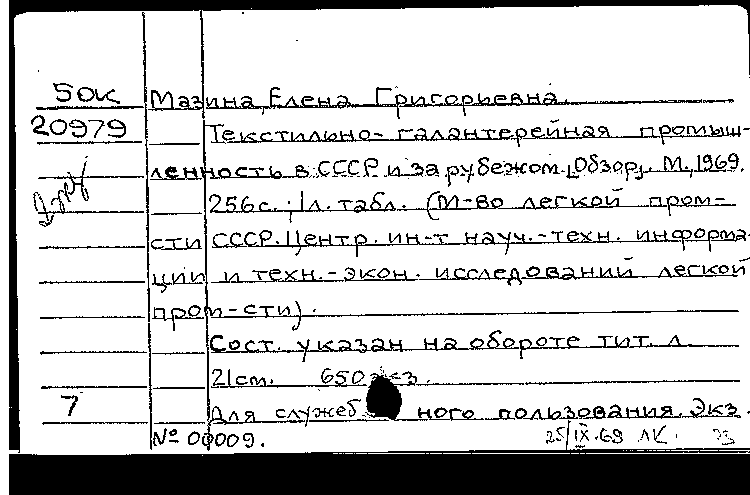 50К Мазина, Елена Григорьевна.
20979 Текстильно-галантерейная промыш-
ленность в СССР и за рубежом. [Обзор]. М., 1969.
256с.; 1л. табл. (М-во легкой пром-
сти СССР. Центр. ин-т науч.-техн. информа-
ции и техн.-экон. исследований легкой
пром-сти).
Сост. указан на обороте тит. л.
21см. 650 экз.
7 Для служеб ного пользования. Экз.
№ 00009.
25/IX-69 ЛК.